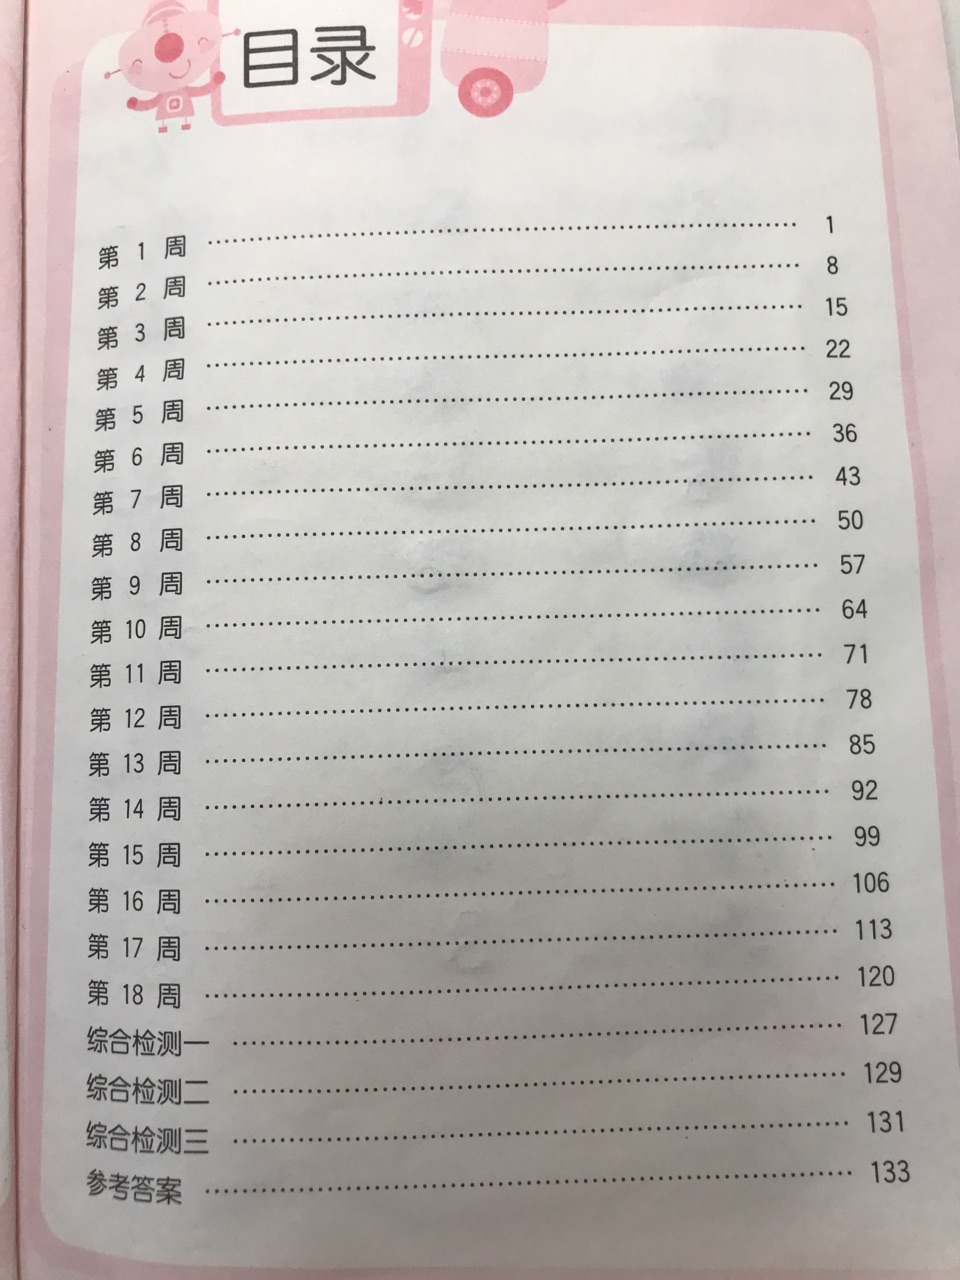 目录
第 1 周 …………………………………… 1
第 2 周 …………………………………… 8
第 3 周 …………………………………… 15
第 4 周 …………………………………… 22
第 5 周 …………………………………… 29
第 6 周 …………………………………… 36
第 7 周 …………………………………… 43
第 8 周 …………………………………… 50
第 9 周 …………………………………… 57
第 10 周 …………………………………… 64
第 11 周 …………………………………… 71
第 12 周 …………………………………… 78
第 13 周 …………………………………… 85
第 14 周 …………………………………… 92
第 15 周 …………………………………… 99
第 16 周 …………………………………… 106
第 17 周 …………………………………… 113
第 18 周 …………………………………… 120
综合检测一 …………………………………… 127
综合检测二 …………………………………… 129
综合检测三 …………………………………… 131
参考答案 …………………………………… 133